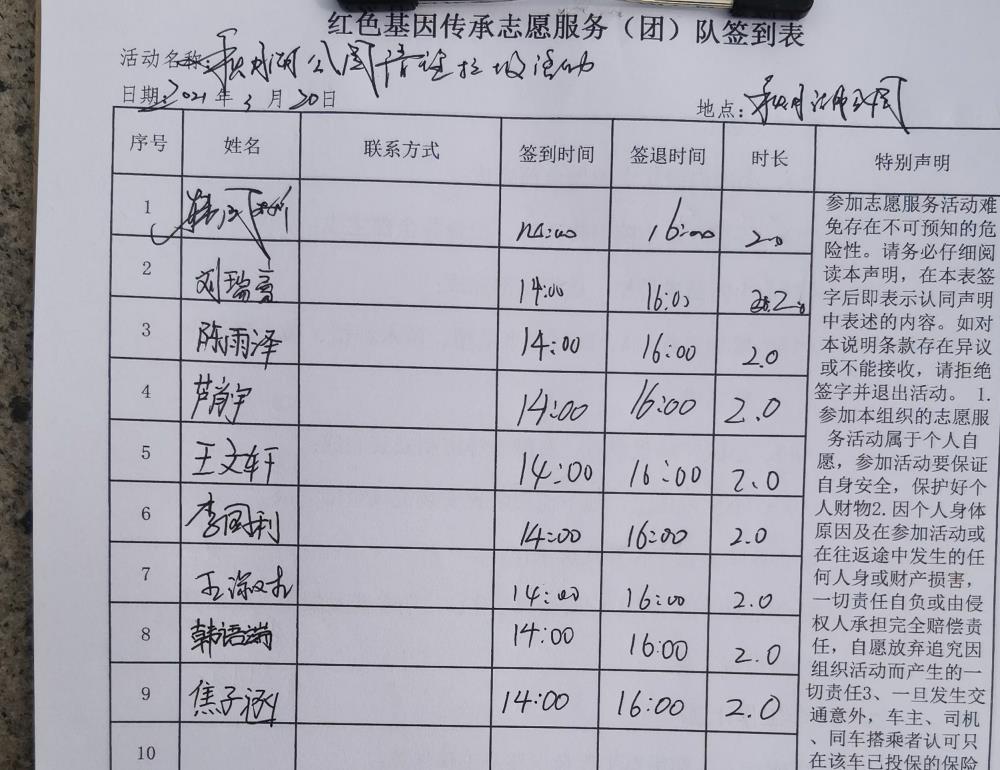 红色基因传承志愿服务（团）队签到表
活动名称：秋月湖公园清理垃圾活动
日期：2021年3月20日
地点：秋月湖公园
序号 姓名 联系方式 签到时间 签退时间 时长 特别声明
1 14:00 16:00 2.0
2 刘瑞高 14:00 16:00 2.0
3 陈雨泽 14:00 16:00 2.0
4 芦首宇 14:00 16:00 2.0
5 王文轩 14:00 16:00 2.0
6 李国利 14:00 16:00 2.0
7 14:00 16:00 2.0
8 韩语端 14:00 16:00 2.0
9 焦子涵 14:00 16:00 2.0
10
参加志愿服务活动难
免存在不可预知的危
险性。请务必仔细阅
读本声明，在本表签
字后即表示认同声明
中表述的内容。如对
本说明条款存在异议
或不能接收，请拒绝
签字并退出活动。 1.
参加本组织的志愿服
务活动属于个人自
愿，参加活动要保证
自身安全，保护好个
人财物2.因个人身体
原因及在参加活动或
在往返途中发生的任
何人身或财产损害，
一切责任自负或由侵
权人承担完全赔偿责
任，自愿放弃追究因
组织活动而产生的一
切责任3、一旦发生交
通意外，车主、司机
、同车搭乘者认可只
在该车已投保的保险